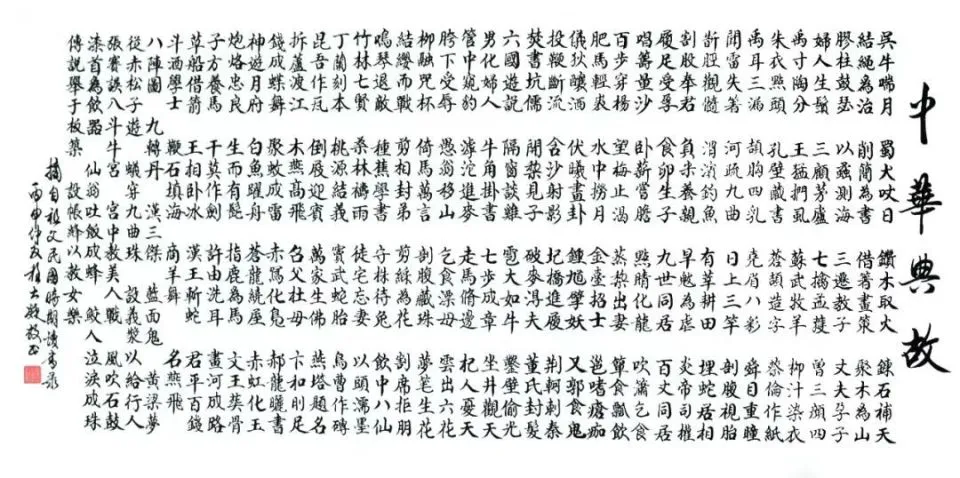 中華典故
吳牛喘月 蜀犬吠日 鑽木取火 鍊石補天
結繩為治 削簡為書 借著畫策 聚木為山
膠柱鼓瑟 以蠡測海 三遷教子 丈夫孕子
婦人生鬚 三顧茅廬 七擒孟獲 曾三顏四
禹寸陶分 王猛捫虱 蘇武牧羊 柳汁染衣
朱衣點頭 孔壁藏書 蒼頡造字 蔡倫作紙
禹耳三漏 胸四乳 堯眉八彩 舜目重瞳
聞雷失著 河疏九曲 日上三竿 剖腹視胎
斮脛觀髓 渭濱釣魚 有莘耕田 埋蛇居相
割股奉君 負米養親 早魃為虐 炎帝司權
履足受辱 食卵生子 九世同居 百丈同居
唱籌量沙 臥薪嘗膽 點睛化龍 吹簫乞食
百步穿楊 望梅止渴 蒸梨出妻 簞食瓢飲
肥馬輕裘 水中撈月 金臺招士 邕嗜瘡痂
儀狄釀酒 伏羲畫卦 鍾馗擘妖 又郭食鬼
投鞭斷流 含沙射影 圯橋進履 荊軻刺秦
焚書坑儒 開棠見子 破麥得夫 董氏封髮
六國遊說 隔窗談雞 雹大如牛 鑿壁偷光
男化婦人 牛角掛書 七步成章 坐井觀天
管中窺豹 滹沱進麥 走馬脩邊 杞人憂天
胯下受辱 愚翁移山 乞食漂母 雲出六花
柳融咒杯 倚馬萬言 剖腹藏珠 夢筆生花
結纓而戰 剪桐封弟 剪綵為花 割席拒朋
嗚琴退敵 種蕉學書 守株待兔 飲中八仙
竹林七賢 桑林禱雨 徙宅忘妻 以頭濡墨
丁蘭刻木 桃源結義 竇武蛇胎 烏曹作磚
昆吾作瓦 倒屐迎賓 萬家生佛 燕塔題名
拆蘆渡江 木燕高飛 召父杜母 卞和刖足
錢成蝶舞 聚蚊成雷 赤舄化鳧 郝龍曬書
神遊月府 白魚躍舟 蒼龍繞屋 赤虹化玉
炮烙忠良 生而有髭 指鹿為馬 畫河成路
子方養馬 干莫作劍 許由洗耳 文王葬骨
草船借箭 王相卧冰 漢王斬蛇 君平百錢
斗酒學士 鞭石填海 商羊舞 名燕飛
八陣圖 九轉丹 漢三傑 藍面鬼 黃粱夢
從赤松子遊 蟻穿九曲珠 設義漿以給行人
張騫誤入斗牛宮 宮中教美人戰 風吹石鼓
漆首為飲器 仙翁吐飯成蜂 鮫人泣淚成珠
傳說舉于板築 設帳絳以教女樂
摘自祖父民國時期讀書錄
丙申仲夏